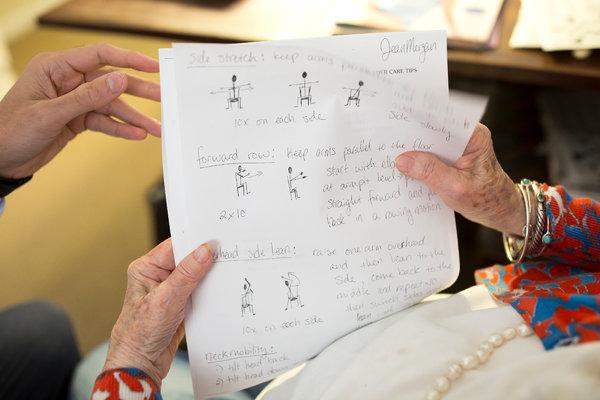 Jean Morgan
CARE TIPS
Side stretch: Keep arms
10x on each side
side slowly
forward row: Keep arms parallel to the floor
start with
at armpit level
straight forward and
back in a rowing motion
2x10
overhead side lean: raise one arm overhead
and then lean to the
side, come back to the
middle and repeat
then switch
10x on each side
Neck mobility:
1) tilt head back
2) tilt head down